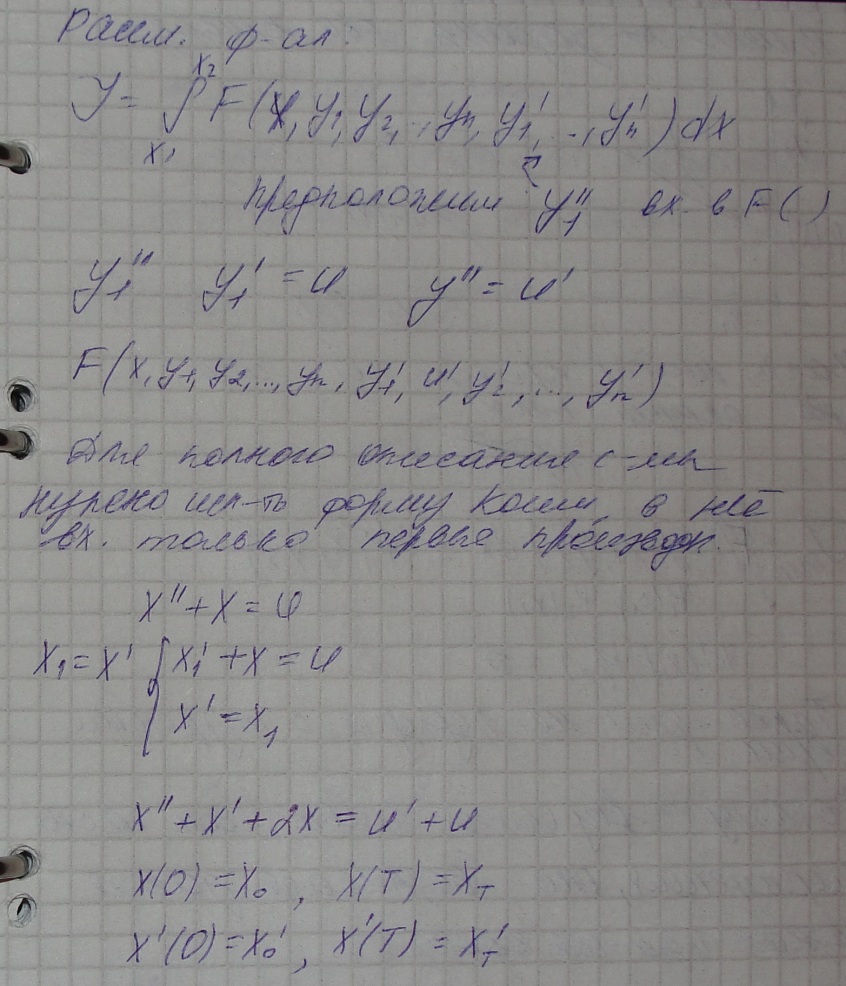 Рассм. ф-ал:
J = ∫ₓ₁ˣ² F(x, y₁, y₂, .., yₙ, y₁', .., yₙ') dx
предположим y₁'' вх. в F( )
y₁'' y₁' = u y'' = u'
F(x, y₁, y₂, ..., yₙ, y₁', u', y₂', ..., yₙ')
Для полного описания с-мы
нужно исп-ть форму Коши, в неё
вх. только первые производн.
x'' + x = u
x₁ = x' { x₁' + x = u
x' = x₁
x'' + x' + 2x = u' + u
x(0) = x₀ , x(T) = x_T
x'(0) = x₀' , x'(T) = x_T'